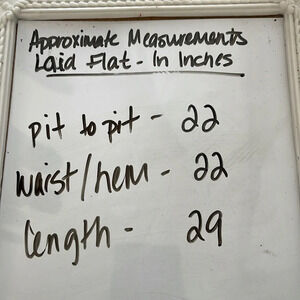 Approximate Measurements
Laid Flat - In Inches
pit to pit - 22
waist/hem - 22
length - 29